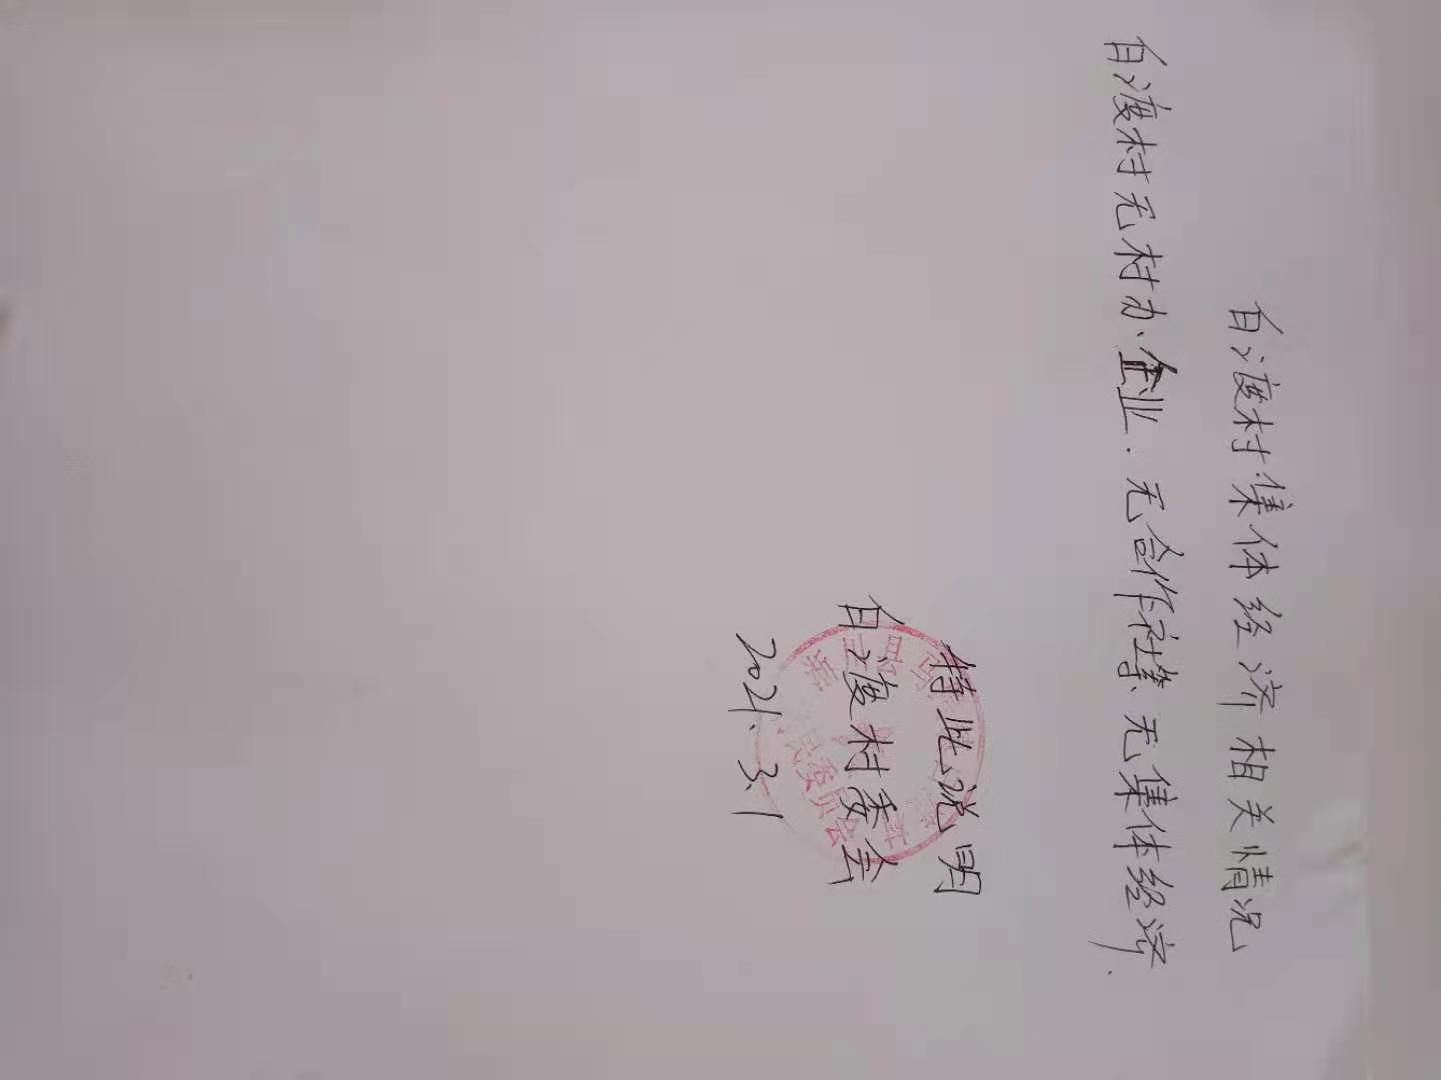 白渡村集体经济相关情况
白渡村无村办企业.无合作社等、无集体经济.
特此说明
白渡村委会
2021.3.1
民委员会